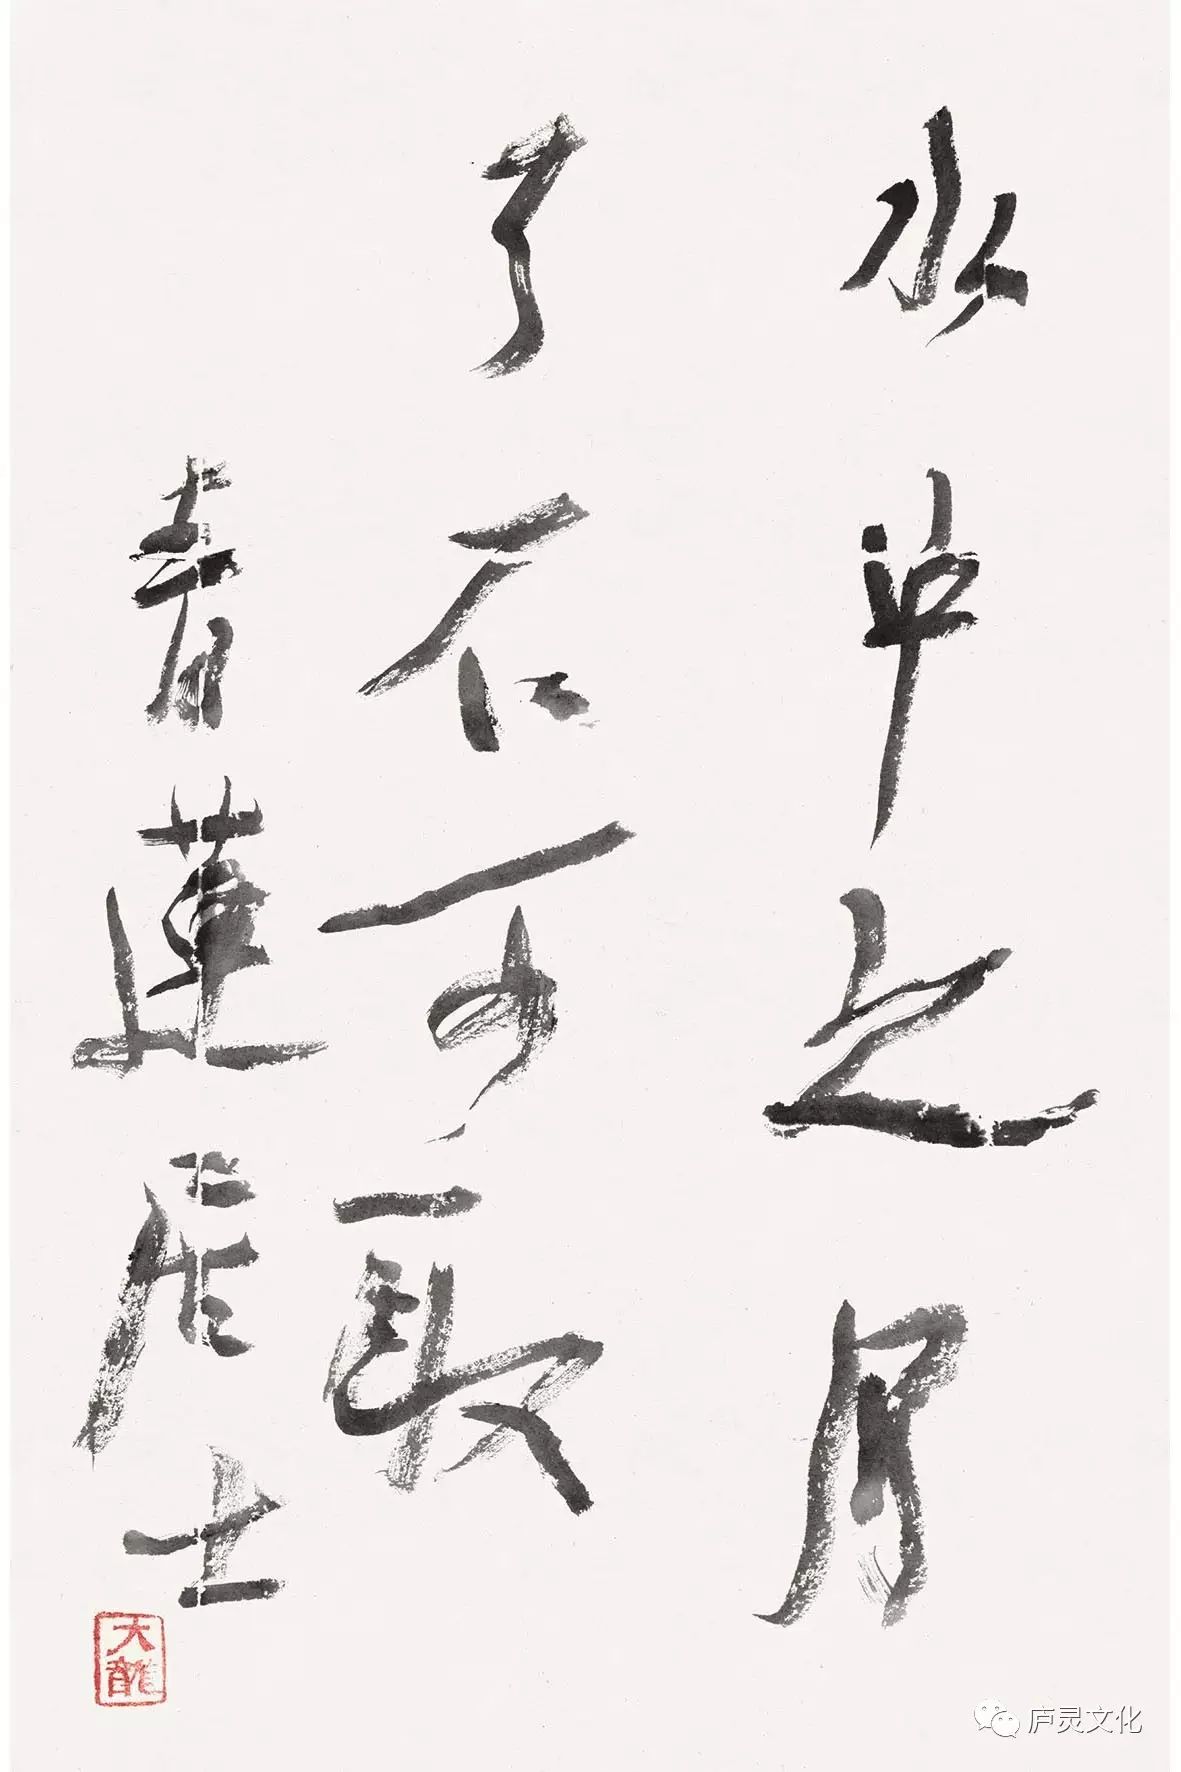 水中之月
了不可取
青蓮居士
大龍
庐灵文化